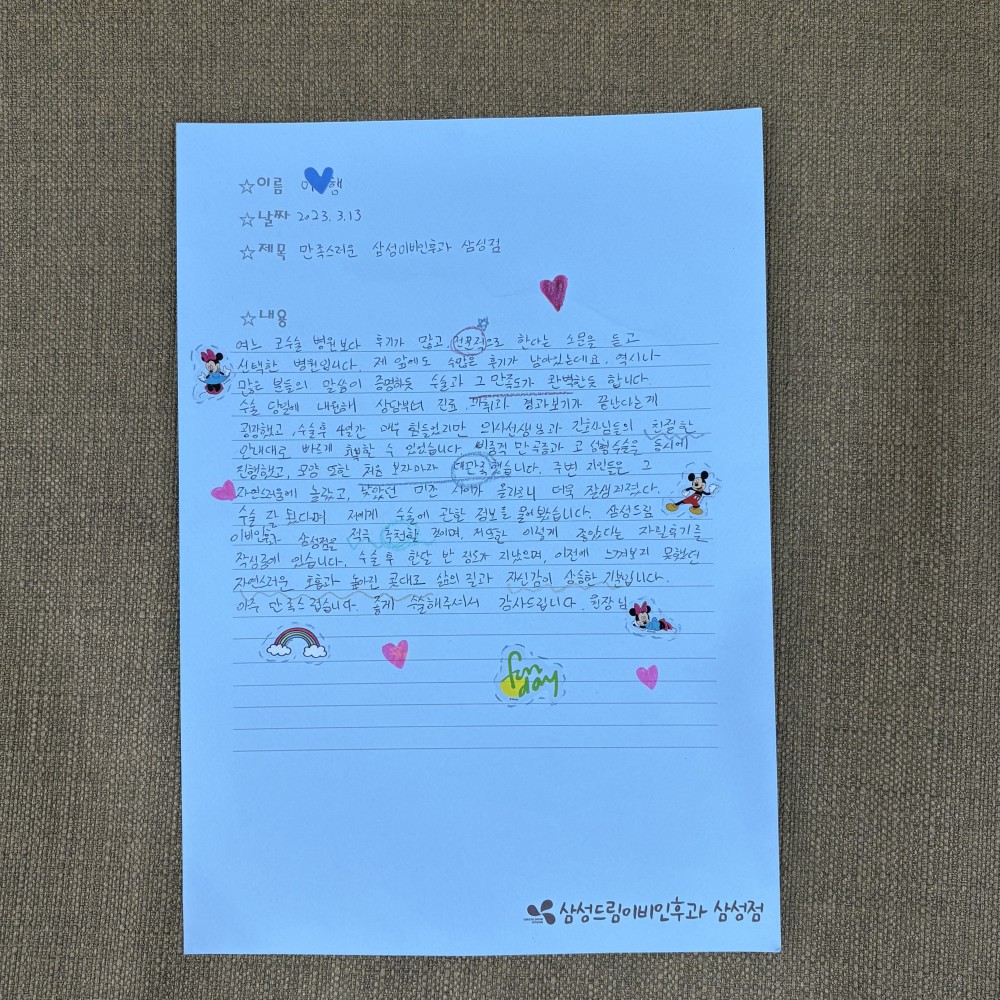 ☆이름 이 행
☆날짜 2023. 3.13
☆제목 만족스러운 삼성이비인후과 삼성점
☆내용
여느 코수술 병원보다 후기가 많고, 전문적으로 한다는 소문을 듣고
선택한 병원입니다. 제 앞에도 수많은 후기가 남아있는데요. 역시나
많은 분들의 말씀이 증명하듯 수술과 그 만족도가 완벽한듯 합니다.
수술 당일에 내원해 상담부터 진료, 마취과 경과보기가 끝난다는게
굉장했고, 수술후 4일간 매우 힘들었지만 의사선생님과 간호사님들의 친절한
안내대로 빠르게 회복할 수 있었습니다. 비중격 만곡증과 코 성형수술을 동시에
진행했고, 모양 또한 처음 보자마자 대만족했습니다. 주변 지인들은 그
자연스러움에 놀랐고, 낮았던 미간 사이가 올라오니 더욱 잘생겨졌다.
수술 잘 됐다며 저에게 수술에 관한 정보를 물어봤습니다. 삼성드림
이비인후과 삼성점을 적극 추천할 것이며, 저또한 이렇게 좋았다는 자필후기를
작성중에 있습니다. 수술 후 한달 반 정도가 지났으며, 이전에 느껴보지 못했던
자연스러운 호흡과 높아진 콧대로 삶의 질과 자신감이 상승한 기분입니다.
아주 만족스럽습니다. 좋게 수술해주셔서 감사드립니다. 원장님
fun
day
삼성드림이비인후과 삼성점